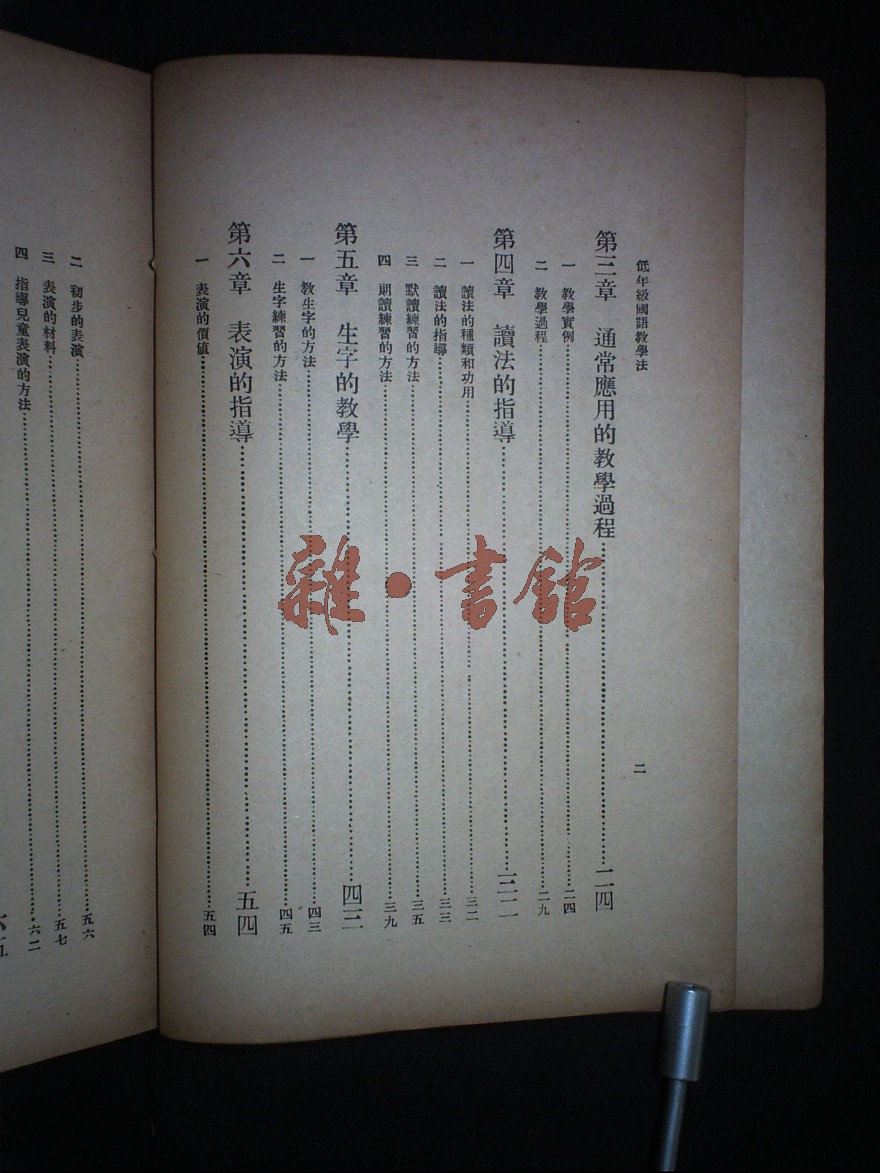 低年級國語教學法
二
第三章 通常應用的教學過程……二四
一 教學實例……二四
二 教學過程……二九
第四章 讀法的指導……三二
一 讀法的種類和功用……三二
二 讀法的指導……三三
三 默讀練習的方法……三五
四 朗讀練習的方法……三九
第五章 生字的教學……四三
一 教生字的方法……四三
二 生字練習的方法……四五
第六章 表演的指導……五四
一 表演的價值……五四
二 初步的表演……五六
三 表演的材料……五七
四 指導兒童表演的方法……六二
雜·書館